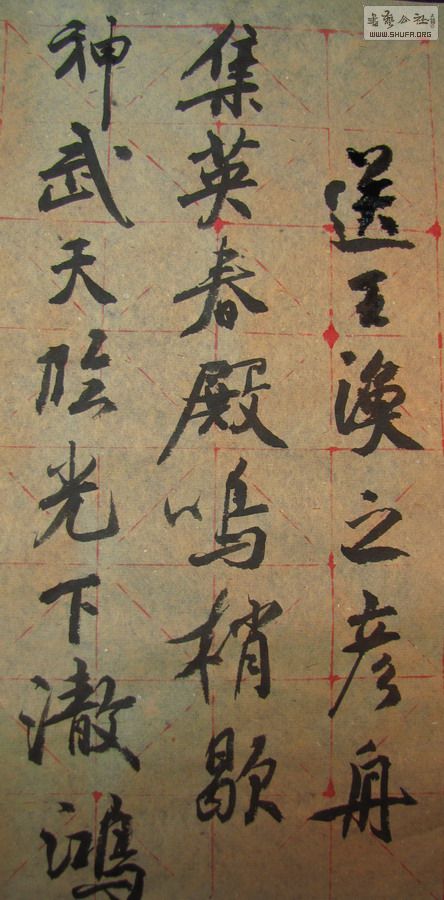 送王渙之彥舟
集英春殿鳴梢歇
神武天臨光下澈鴻
書藝公社
WWW.SHUFA.ORG